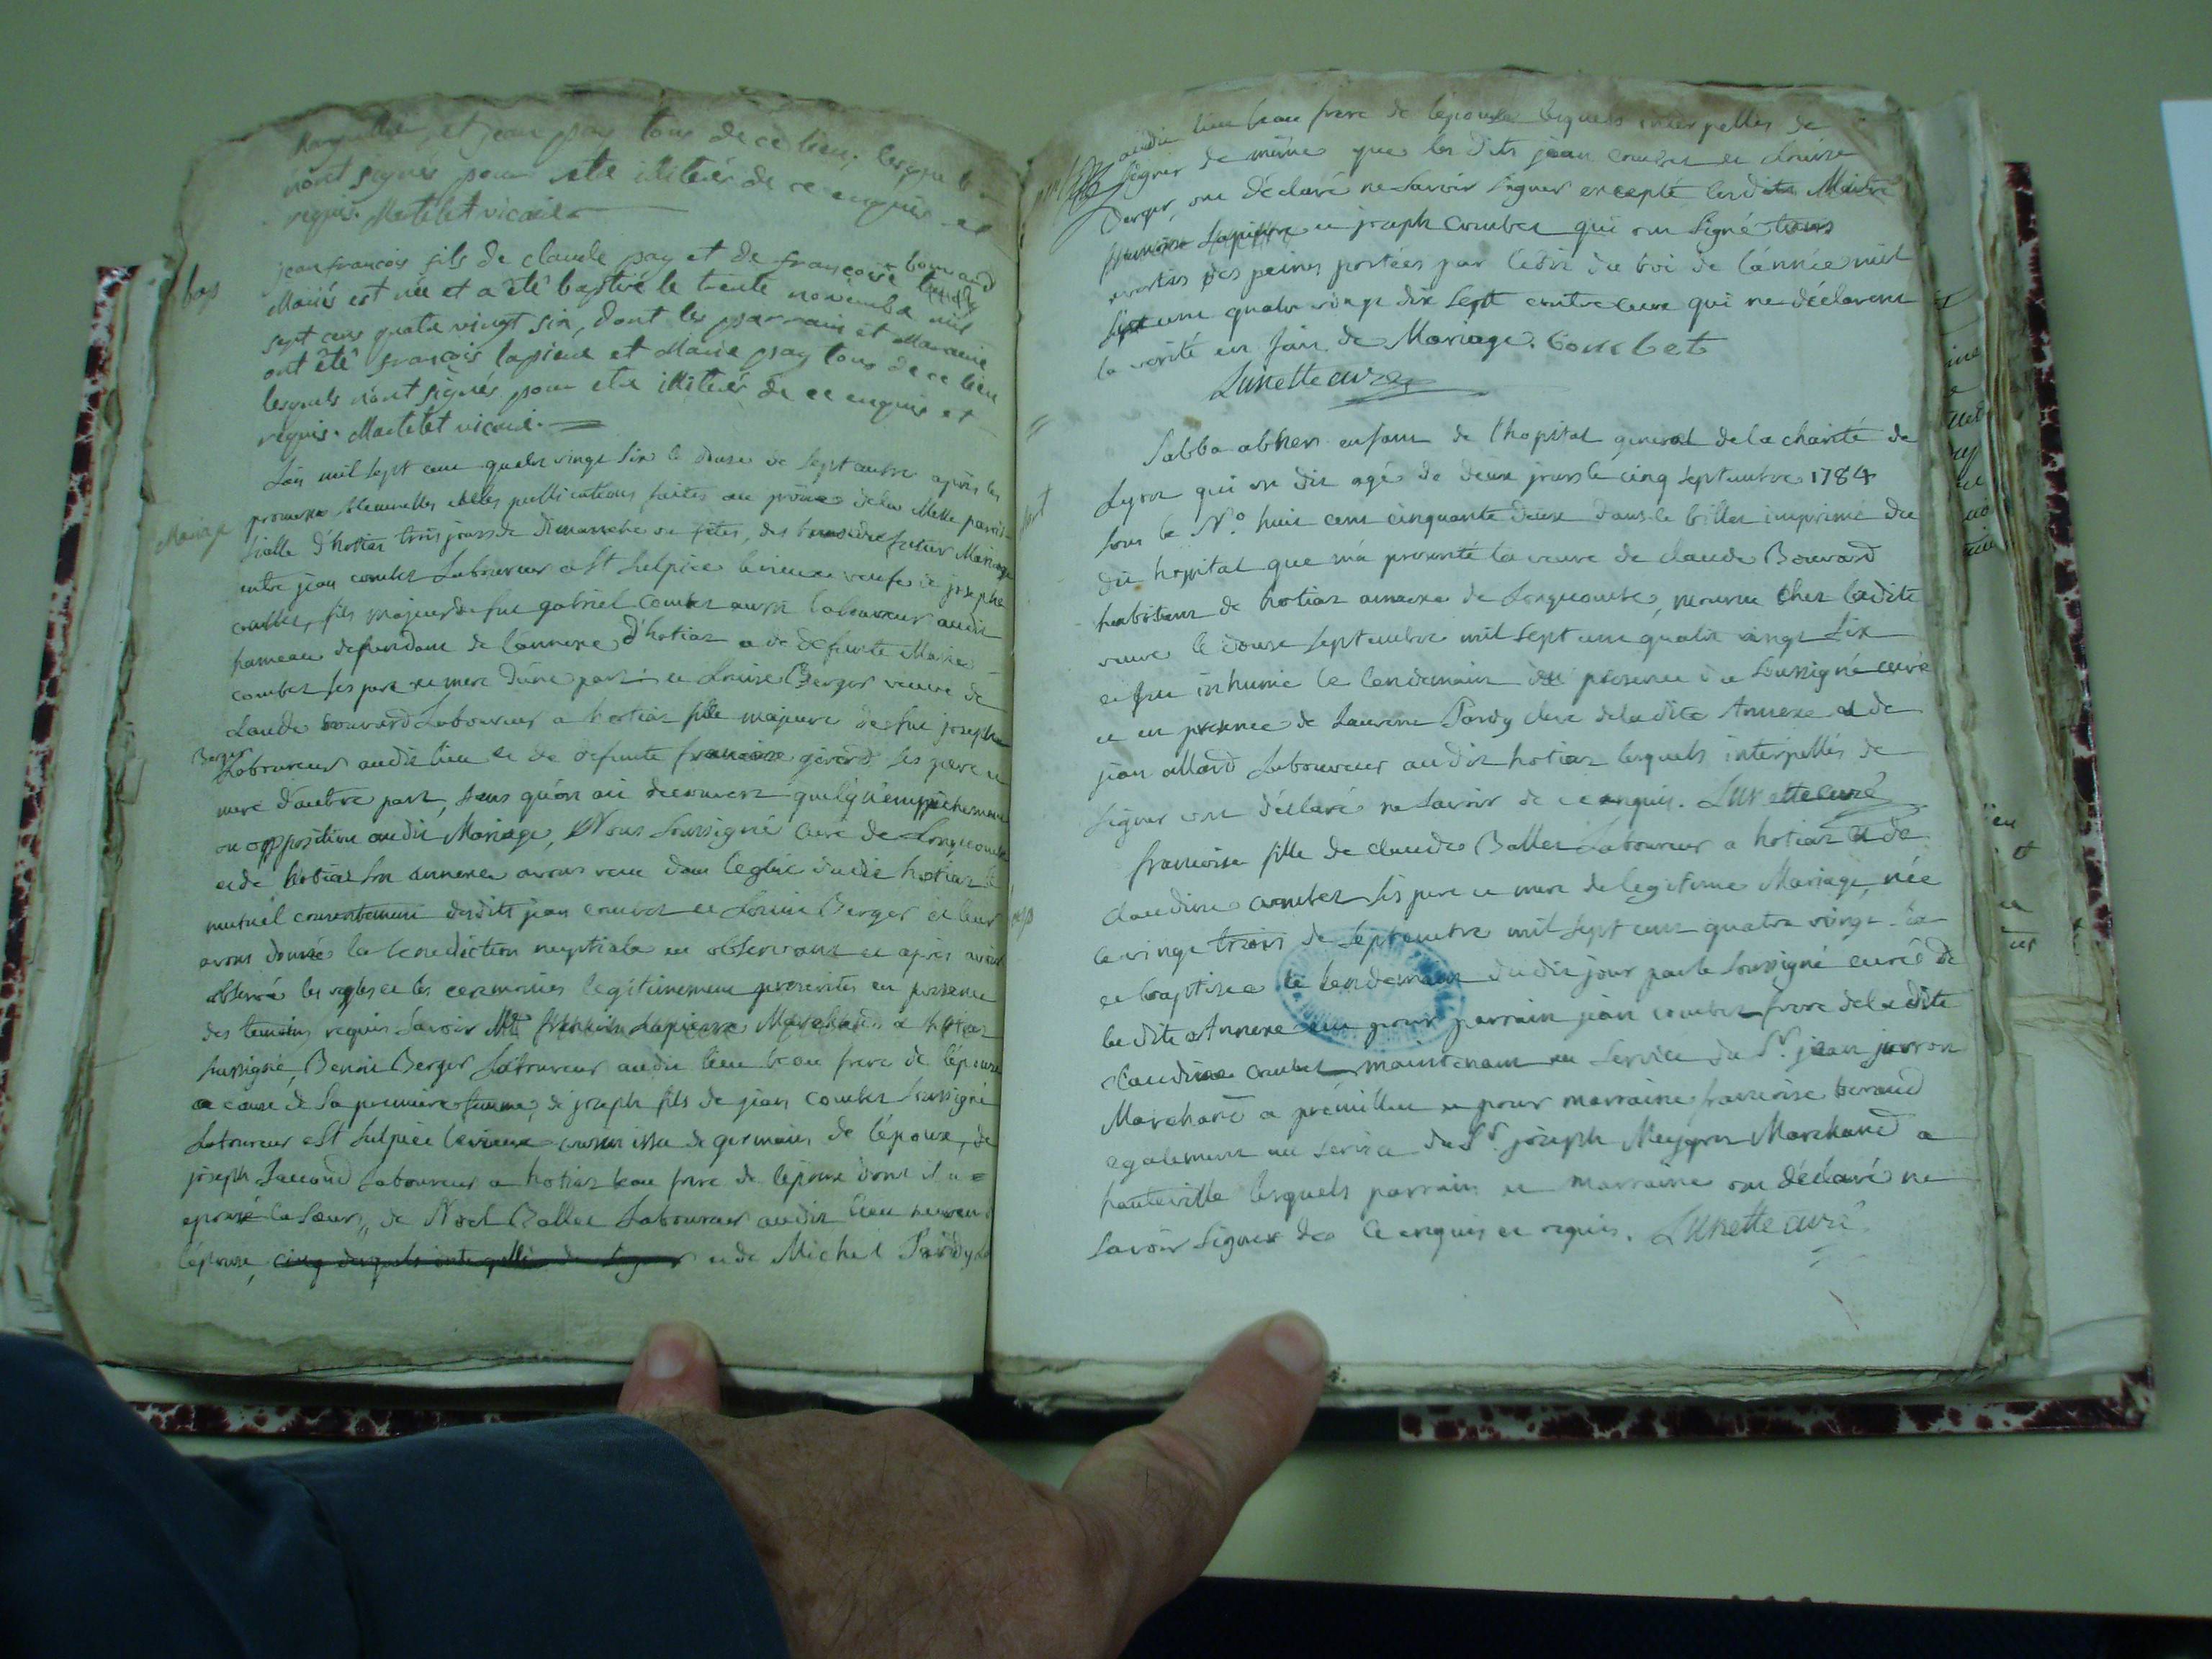 et jean pay tous de ce lieu, lesquels
n'ont signés pour etre illiterés de ce enquis et
requis. Martelet vicaire
bap
jean françois fils de claude pay et de françoise bouvard
Mariés est née et a êté baptisé le trente novembre mil
sept cens quatre vingt six, dont les parrain et Maraine
ont êté françois lapierre et Marie pay tous de ce lieu
lesquels n'ont signés pour etre illiterés de ce enquis et
requis. Martelet vicaire.
Mariage
L'an mil sept cent quatre vingt Six le douse de Septembre après les
promesses et les publications faites au prône de la Messe parois-
sialle d'hotiaz trois jours de Dimanche ou fêtes, des futur Mariage
entre jean combet Laboureur a St Sulpice le vieux veuf de josephe
combet, fils majeur de fut gabriel Combet aussi laboureur audit
hameau dependant de l'annexe d'hotiaz et de deffunte Marie
combet ses pere et mere d'une part et Louise Berger veuve de
claude bouvard Laboureur a hotiaz fille majeure de fut joseph
Berger
Laboureur audit lieu et de defunte francoise girord ses pere et
mere d'autre part, sans qu'on ait decouvert quelqu'empechement
ou opposition audit Mariage, Nous Soussigné Curé de Longecombe
et de hotiaz son annexe avons reçu dans l'eglise dudit hotiaz le
mutuel consentement desdits jean combet et Louise Berger et leur
avons donné la benediction nuptiale en observant et après avoir
observé les regles et les ceremonies legitimement prescrites en presence
des temoins requis Savoir Mtre francois Lapierre Marchand a hotiaz
Soussigné, Benoit Berger Laboureur audit lieu beau frere de l'épouse
a cause de Sa premiere femme, de joseph fils de jean Combet Soussigné
Laboureur a St Sulpice le vieux cousin issu de germain de l'époux, de
joseph Jacoud Laboureur a hotiaz beau frere de l'épouse dont il a
epousé la Soeur, de Noel Ballet Laboureur audit lieu neveu de
l'épouse, cinq desquels interpellés de Signer et de Michel Pardy La
audit lieu beau frere de l'épouse lesquels interpellés de
Signer de même que les dits jean combet et Louise
Berger, ont déclaré ne Savoir Signer excepté lesdits Maitre
francois Lapierre et joseph Combet qui ont Signé tous
avertis des peines portées par l'edit du Roi de l'année mil
six cent quatre vingt dix Sept contre ceux qui ne déclarent
la verité en fait de Mariage. Combet
Lunette curé
mort
Sabba abhen enfant de l'hopital general de la charité de
Lyon qui on dit agé de deux jours le cinq Septembre 1784
Sous le No. huit cent cinquante deux dans le billet imprimé du
dit hopital que m'a presenté la veuve de claude Bouvard
habitant de hotiaz annexe de Longecombe, mourut chez ladite
veuve le douse Septembre mil Sept cent quatre vingt Six
et fut inhumé le lendemain en presence du Soussigné curé
et en presence de Laurent Pardy clerc de ladite Annexe et de
jean allard Laboureur audit hotiaz lesquels interpellés de
Signer ont déclaré ne Savoir de ce enquis. Lunette curé
francoise fille de claude Ballet Laboureur a hotiaz et de
claudine combet Ses pere et mere de legitime Mariage, née
le vingt trois de Septembre mil Sept cent quatre vingt Six
et baptisée le lendemain dudit jour par le Soussigné curé de
ladite Annexe eut pour parrain jean combet frere de la dite
claudine Combet maintenant au Service du Sr. jean juvron
Marchand a premillieu et pour marraine francoise beraud
egalement au Service du Sr. joseph Meygret Marchand a
hauteville lesquels parrain et marraine ont déclaré ne
Savoir Signer de ce enquis et requis. Lunette curé